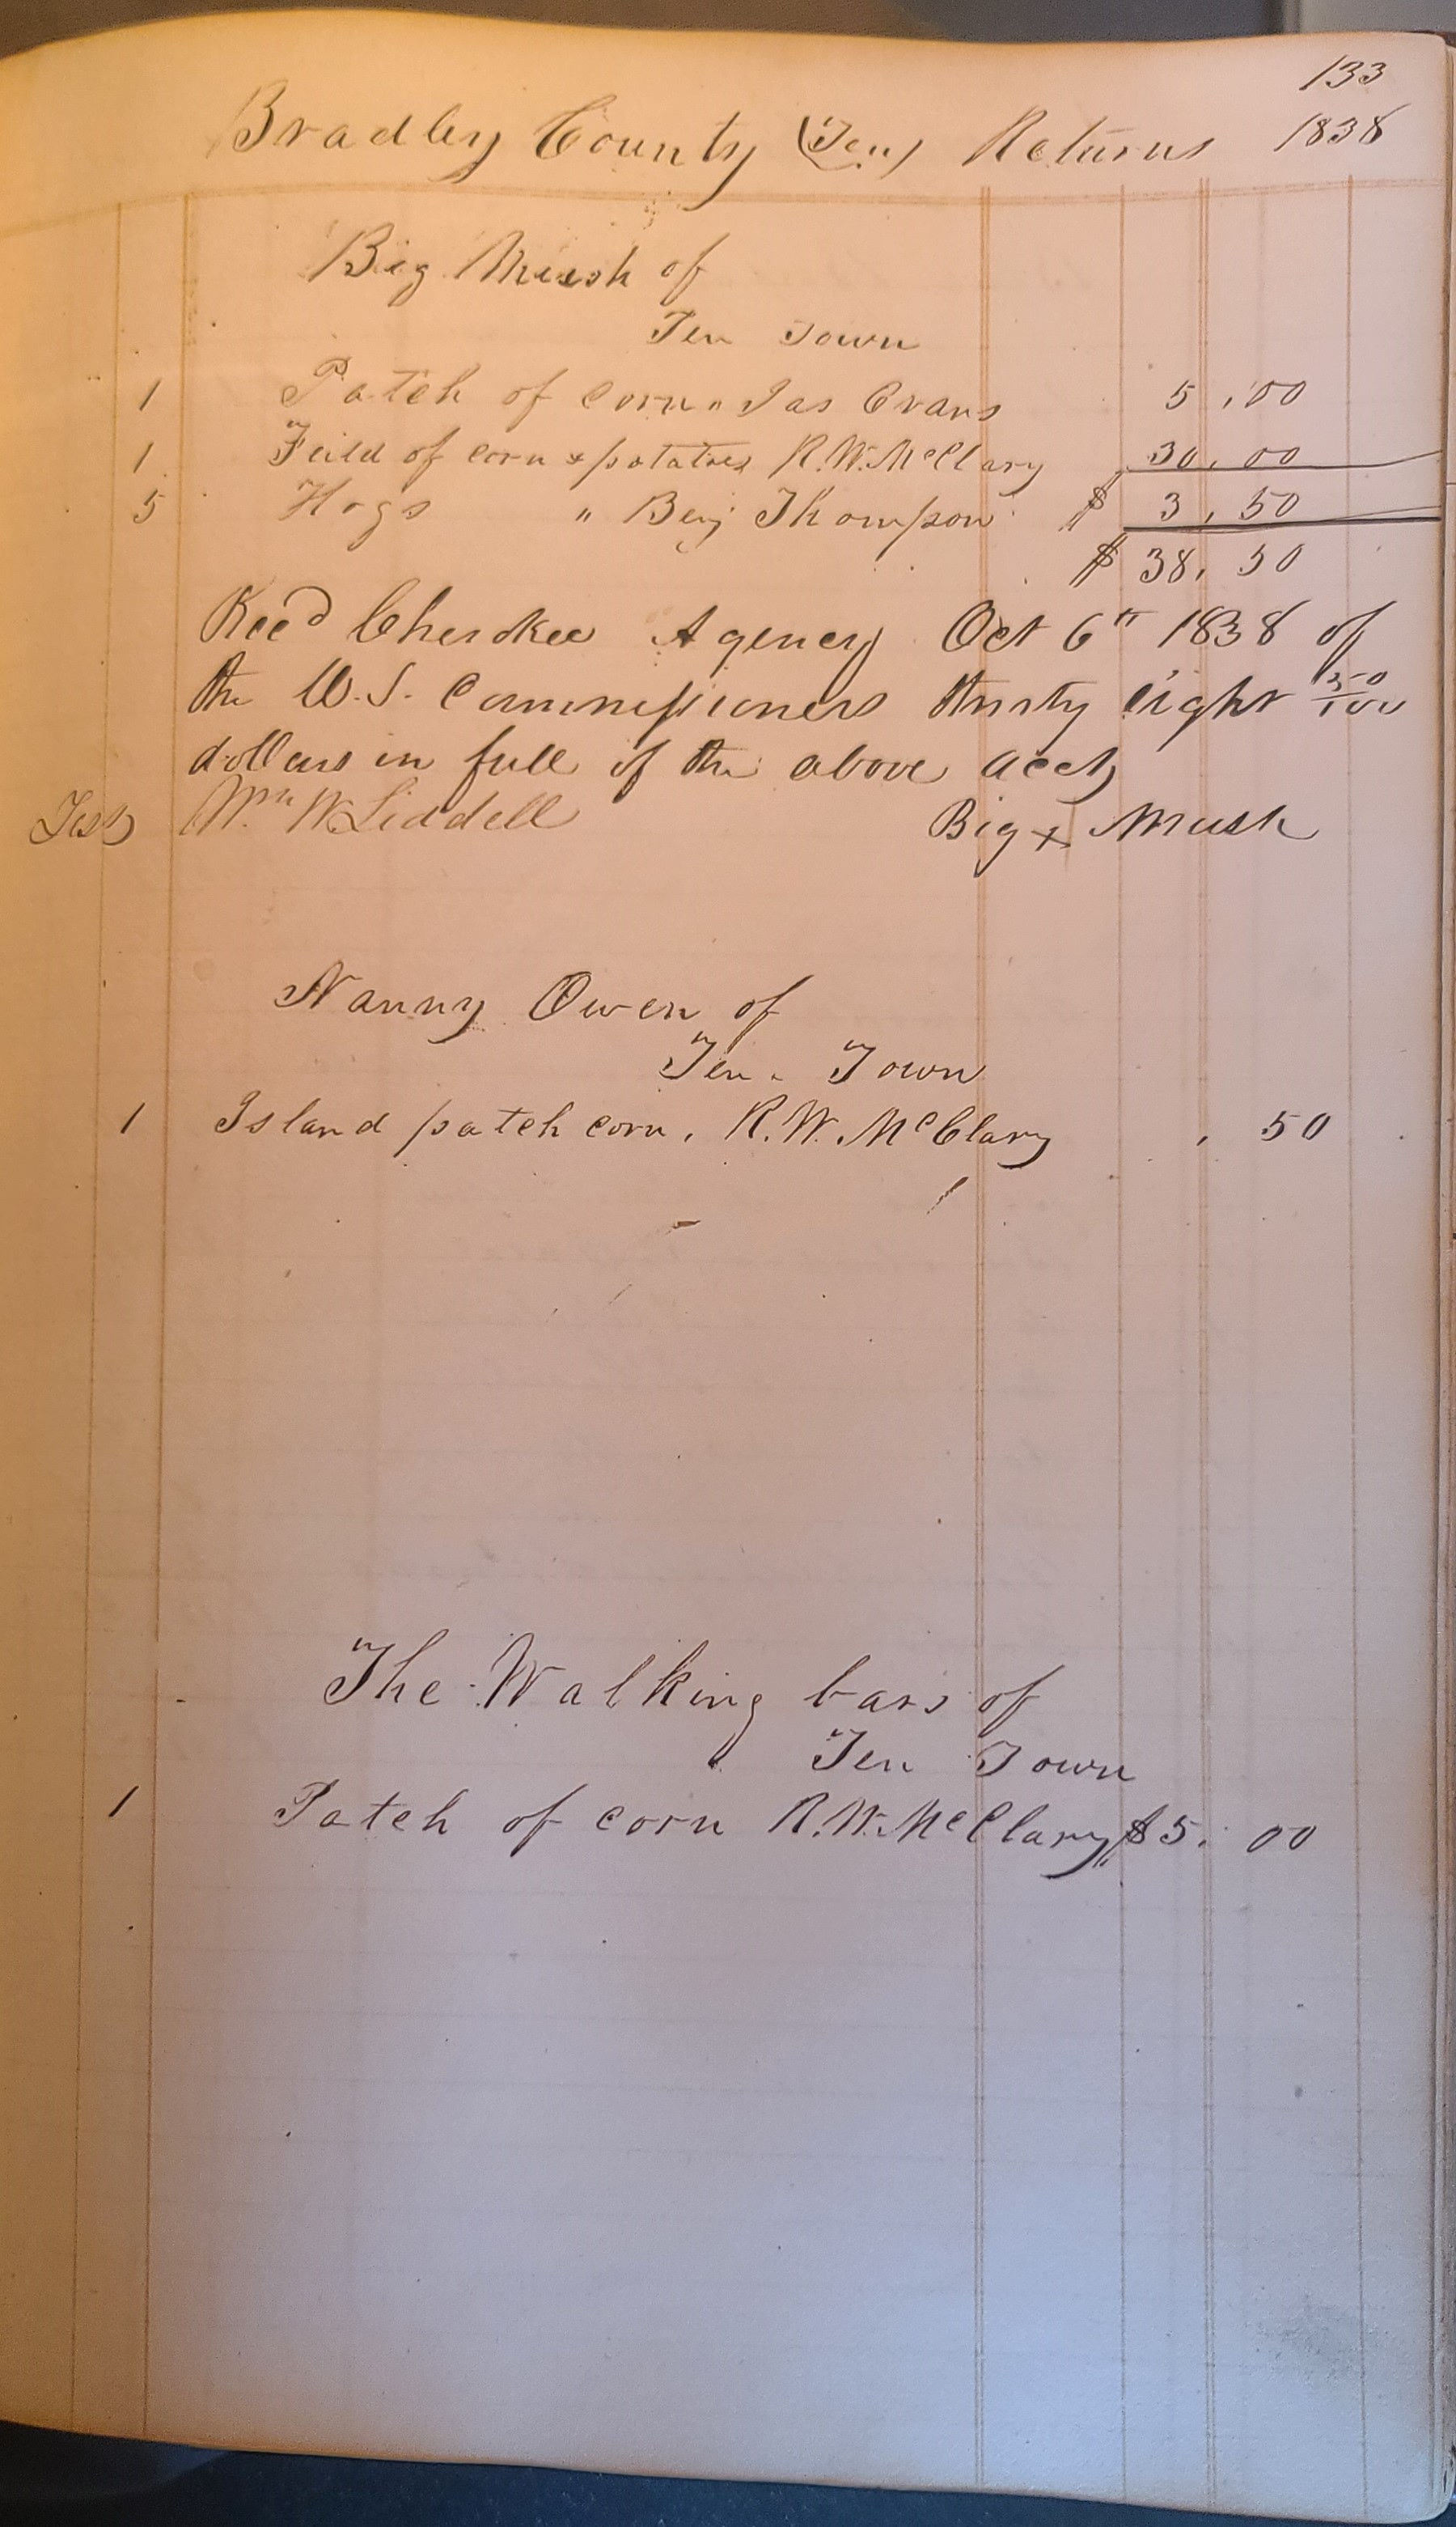 133
Bradley County (Ten) Returns 1838
Big Mush of
Ten Town
1 Patch of corn " Jas Evans 5,00
1 Feild of corn & potatoes R.W. McClary 30,00
5 Hogs " Benj Thompson $ 3,50
$ 38,50
Recd Cherokee Agency Oct 6th 1838 of
the U.S. Commissioners thirty eight 50/100
dollars in full of the above acct
Test Wm W Liddell Big x Mush
Nanny Owen of
Ten. Town
1 Island patch corn, R.W. McClary , 50
The Walking bars of
Ten Town
1 Patch of corn R.W. McClary $5. 00